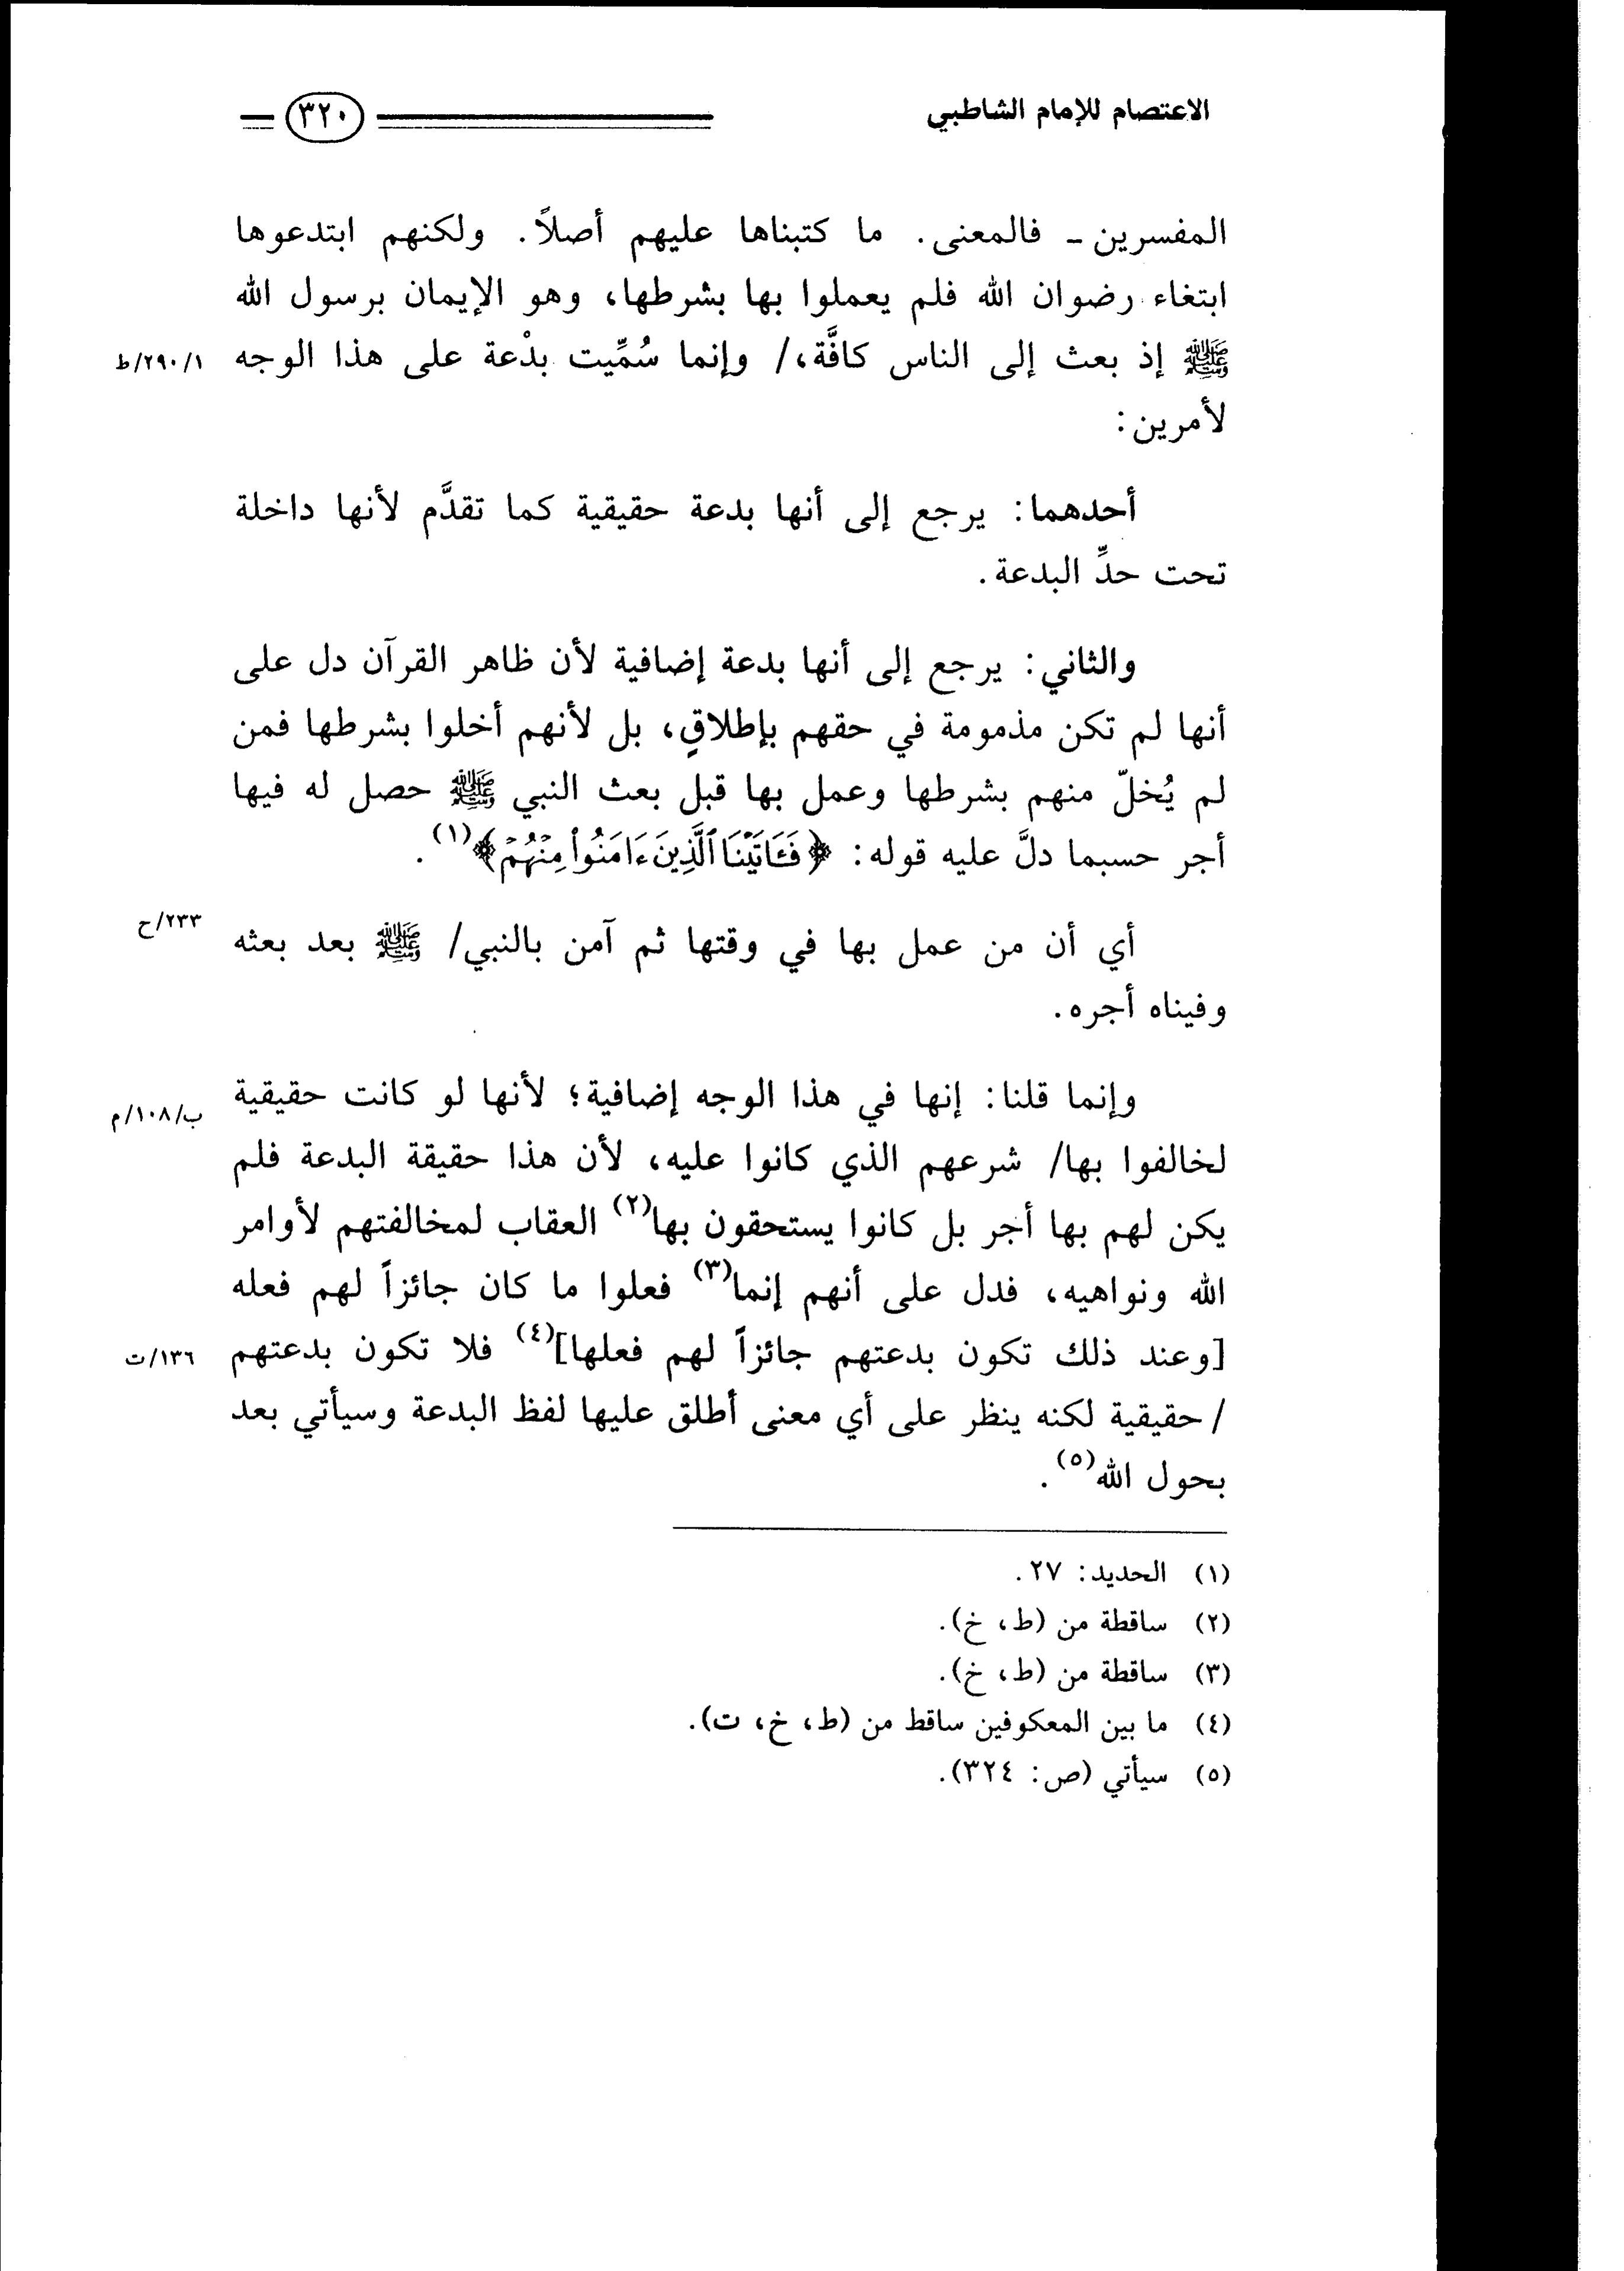 الاعتصام للإمام الشاطبي
٣٢٠
المفسرين ـ فالمعنى. ما كتبناها عليهم أصلاً. ولكنهم ابتدعوها
ابتغاء رضوان الله فلم يعملوا بها بشرطها، وهو الإيمان برسول الله
ﷺ إذ بعث إلى الناس كافَّة،/ وإنما سُمِّيت بدْعة على هذا الوجه
٢٩٠/١/ط
لأمرين:
أحدهما: يرجع إلى أنها بدعة حقيقية كما تقدَّم لأنها داخلة
تحت حدِّ البدعة.
والثاني: يرجع إلى أنها بدعة إضافية لأن ظاهر القرآن دل على
أنها لم تكن مذمومة في حقهم بإطلاقٍ، بل لأنهم أخلوا بشرطها فمن
لم يُخلّ منهم بشرطها وعمل بها قبل بعث النبي ﷺ حصل له فيها
أجر حسبما دلَّ عليه قوله: ﴿فَـَٔاتَيْنَا ٱلَّذِينَ ءَامَنُوا۟ مِنْهُمْ﴾(١).
أي أن من عمل بها في وقتها ثم آمن بالنبي/ ﷺ بعد بعثه
٢٣٣/ح
وفيناه أجره.
وإنما قلنا: إنها في هذا الوجه إضافية؛ لأنها لو كانت حقيقية
ب/١٠٨/م
لخالفوا بها/ شرعهم الذي كانوا عليه، لأن هذا حقيقة البدعة فلم
يكن لهم بها أجر بل كانوا يستحقون بها(٢) العقاب لمخالفتهم لأوامر
الله ونواهيه، فدل على أنهم إنما(٣) فعلوا ما كان جائزاً لهم فعله
[وعند ذلك تكون بدعتهم جائزاً لهم فعلها](٤) فلا تكون بدعتهم
١٣٦/ت
/حقيقية لكنه ينظر على أي معنى أطلق عليها لفظ البدعة وسيأتي بعد
بحول الله(٥).
(١) الحديد: ٢٧.
(٢) ساقطة من (ط، خ).
(٣) ساقطة من (ط، خ).
(٤) ما بين المعكوفين ساقط من (ط، خ، ت).
(٥) سيأتي (ص: ٣٢٤).